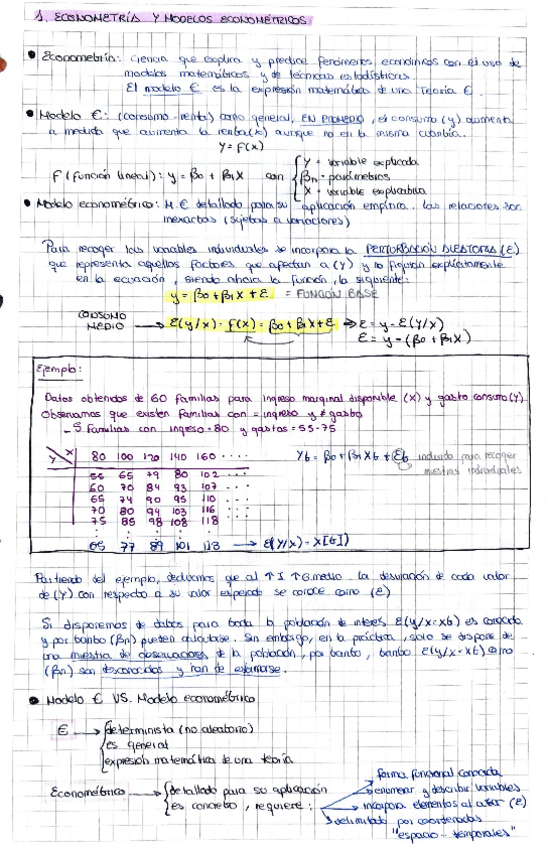 1. ECONOMETRÍA Y MODELOS ECONOMÉTRICOS.
• Econometría: ciencia que explica y predice fenómenos económicos con el uso de
modelos matemáticos y de técnicas estadísticas.
El modelo € es la expresión matemática de una Teoría €.
• Modelo €: (consumo-renta) como general, EN PROMEDIO, el consumo (y) aumenta
a medida que aumenta la renta (x) aunque no en la misma cuantía.
Y = f(x)
f (función lineal): y = β0 + β1X con { Y = variable explicada
βn = parámetros
X = variable explicativa
• Modelo econométrico: M.€ detallado para su aplicación empírica. Las relaciones son
inexactas (sujetas a variaciones)
Para recoger las variables individuales se incorpora la PERTURBACIÓN ALEATORIA (ε)
que representa aquellos factores que afectan a (Y) y no figuran explícitamente
en la ecuación, siendo ahora la función, la siguiente:
y = β0 + β1X + ε = FUNCIÓN BASE
CONSUMO
MEDIO → E(y/x) = f(x) = β0 + β1X + ε ⇒ ε = y - E(Y/x)
ε = y - (β0 + β1X)
Ejemplo:
Datos obtenidos de 60 familias para ingreso marginal disponible (X) y gasto consumo (Y).
Observamos que existen familias con = ingreso y ≠ gasto
- 5 familias con ingreso = 80 y gastos = 55-75
Y X 80 100 120 140 160 ....
55 65 79 80 102 ....
60 70 84 93 107 ....
65 74 90 95 110 ...
70 80 94 103 116 ...
75 85 98 108 118 ...
65 77 89 101 113 → E(Y/X) - X[6])
Yt = β0 + β1Xt + εt incluido para recoger
muestras individuales
Partiendo del ejemplo, deducimos que al ↑I ↑G.medio. La desviación de cada valor
de (Y) con respecto a su valor esperado se conoce como (ε)
Si disponemos de datos para toda la población de interés E(y/x=xt) es conocida
y por tanto (βn) pueden calcularse. Sin embargo, en la práctica, solo se dispone de
una muestra de observaciones de la población, por tanto, tanto E(y/x=xt) como
(βn) son desconocidos y han de estimarse.
• Modelo € VS. Modelo econométrico
€ → { determinista (no aleatorio)
es general
expresión matemática de una teoría
Econométrico → { detallado para su aplicación
es concreto, requiere:
forma funcional conocida
enumerar y describir variables
incorpora elementos al azar (ε)
delimitado por coordenadas
"espacio - temporales"